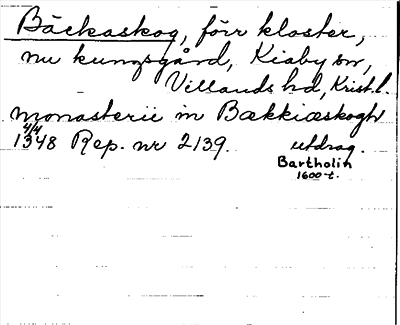 Bäckaskog, förr kloster,
nu kungsgård, Kiaby sn,
Villands hd, Krist.l.
monasterii in Bækkiæskogh
4/4
1348 Rep. nr 2139. utdrag.
Bartholin
1600-t.